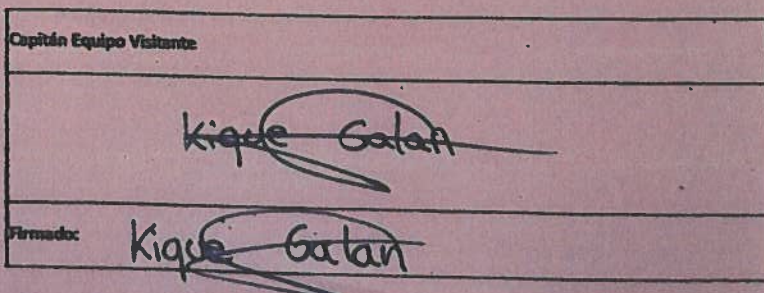 Capitán Equipo Visitante
Kique Galan
Firmado: Kique Galan